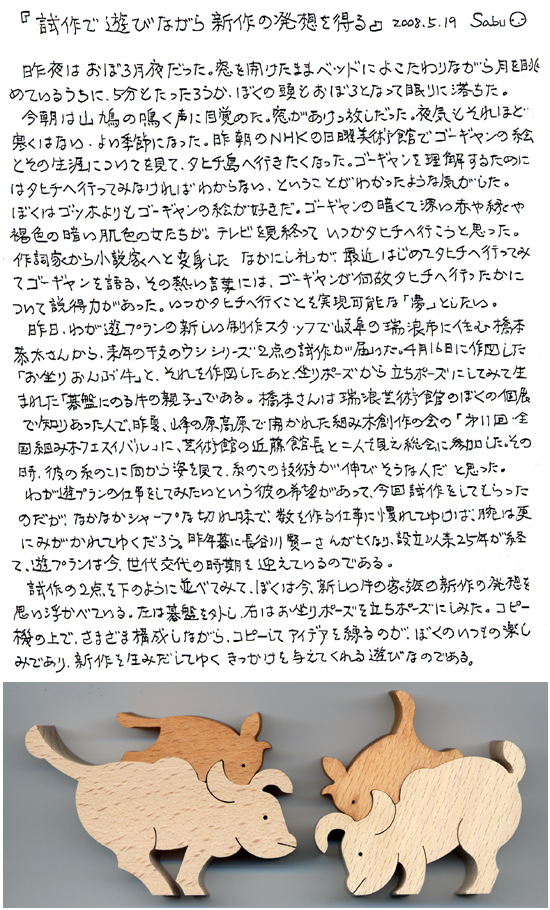 『試作で遊びながら新作の発想を得る』 2008.5.19 Sabu
昨夜はおぼろ月夜だった。窓を開けたままベッドによこたわりながら月を眺
めているうちに、5分とたったろうか、ぼくの頭もおぼろとなって眠りに落ちた。
今朝は山鳩の鳴く声に目覚めた。窓があけっ放しだった。夜気もそれほど
寒くはない、よい季節になった。昨朝のNHKの日曜美術館でゴーギャンの絵
とその生涯についてを見て、タヒチ島へ行きたくなった。ゴーギャンを理解するためには
はタヒチへ行ってみなければわからない、ということがわかったような気がした。
ぼくはゴッホよりもゴーギャンの絵が好きだ。ゴーギャンの暗くて深い赤や緑や
褐色の暗い肌色の女たちが。テレビを見終って いつかタヒチへ行こうと思った。
作詞家から小説家へと変身した なかにし礼が、最近はじめてタヒチへ行ってみ
てゴーギャンを語る、その熱い言葉には、ゴーギャンが何故タヒチへ行ったかに
ついて説得力があった。いつかタヒチへ行くことを実現可能な「夢」としたい。
昨日、わが遊プランの新しい制作スタッフで岐阜の瑞浪市に住む橋本
恭太さんから、来年の干支のウシシリーズ2点の試作が届いた。4月16日に作図した
「お坐りおんぶ牛」と、それを作図したあと、坐りポーズから立ちポーズにしてみて生
まれた「碁盤にのる牛の親子」である。橋本さんは瑞浪芸術館のぼくの個展
で知りあった人で、昨夏、峰の原高原で開かれた組み木創作の会の「第11回全
国組み木フェスティバル」に、芸術館の近藤館長と二人で見え総会に参加した。その
時、彼の糸のこに向かう姿を見て、糸のこの技術が伸びそうな人だと思った。
わが遊プランの仕事をしてみたいという彼の希望があって、今回試作をしてもらった
のだが、なかなかシャープな切れ味で、数を作る仕事に慣れてゆけば、腕は更
にみがかれてゆくだろう。昨年暮に長谷川賢一さんが亡くなり、設立以来25年が経
て、遊プランは今、世代交代の時期を迎えているのである。
試作の2点を下のように並べてみて、ぼくは今、新しい牛の家族の新作の発想を
思い浮かべている。左は碁盤を外し、右はお坐りポーズを立ちポーズにしみた。コピー
機の上で、さまざま構成しながら、コピーしてアイデアを練るのが、ぼくのいつもの楽し
みであり、新作を生みだしてゆく きっかけを与えてくれる遊びなのである。